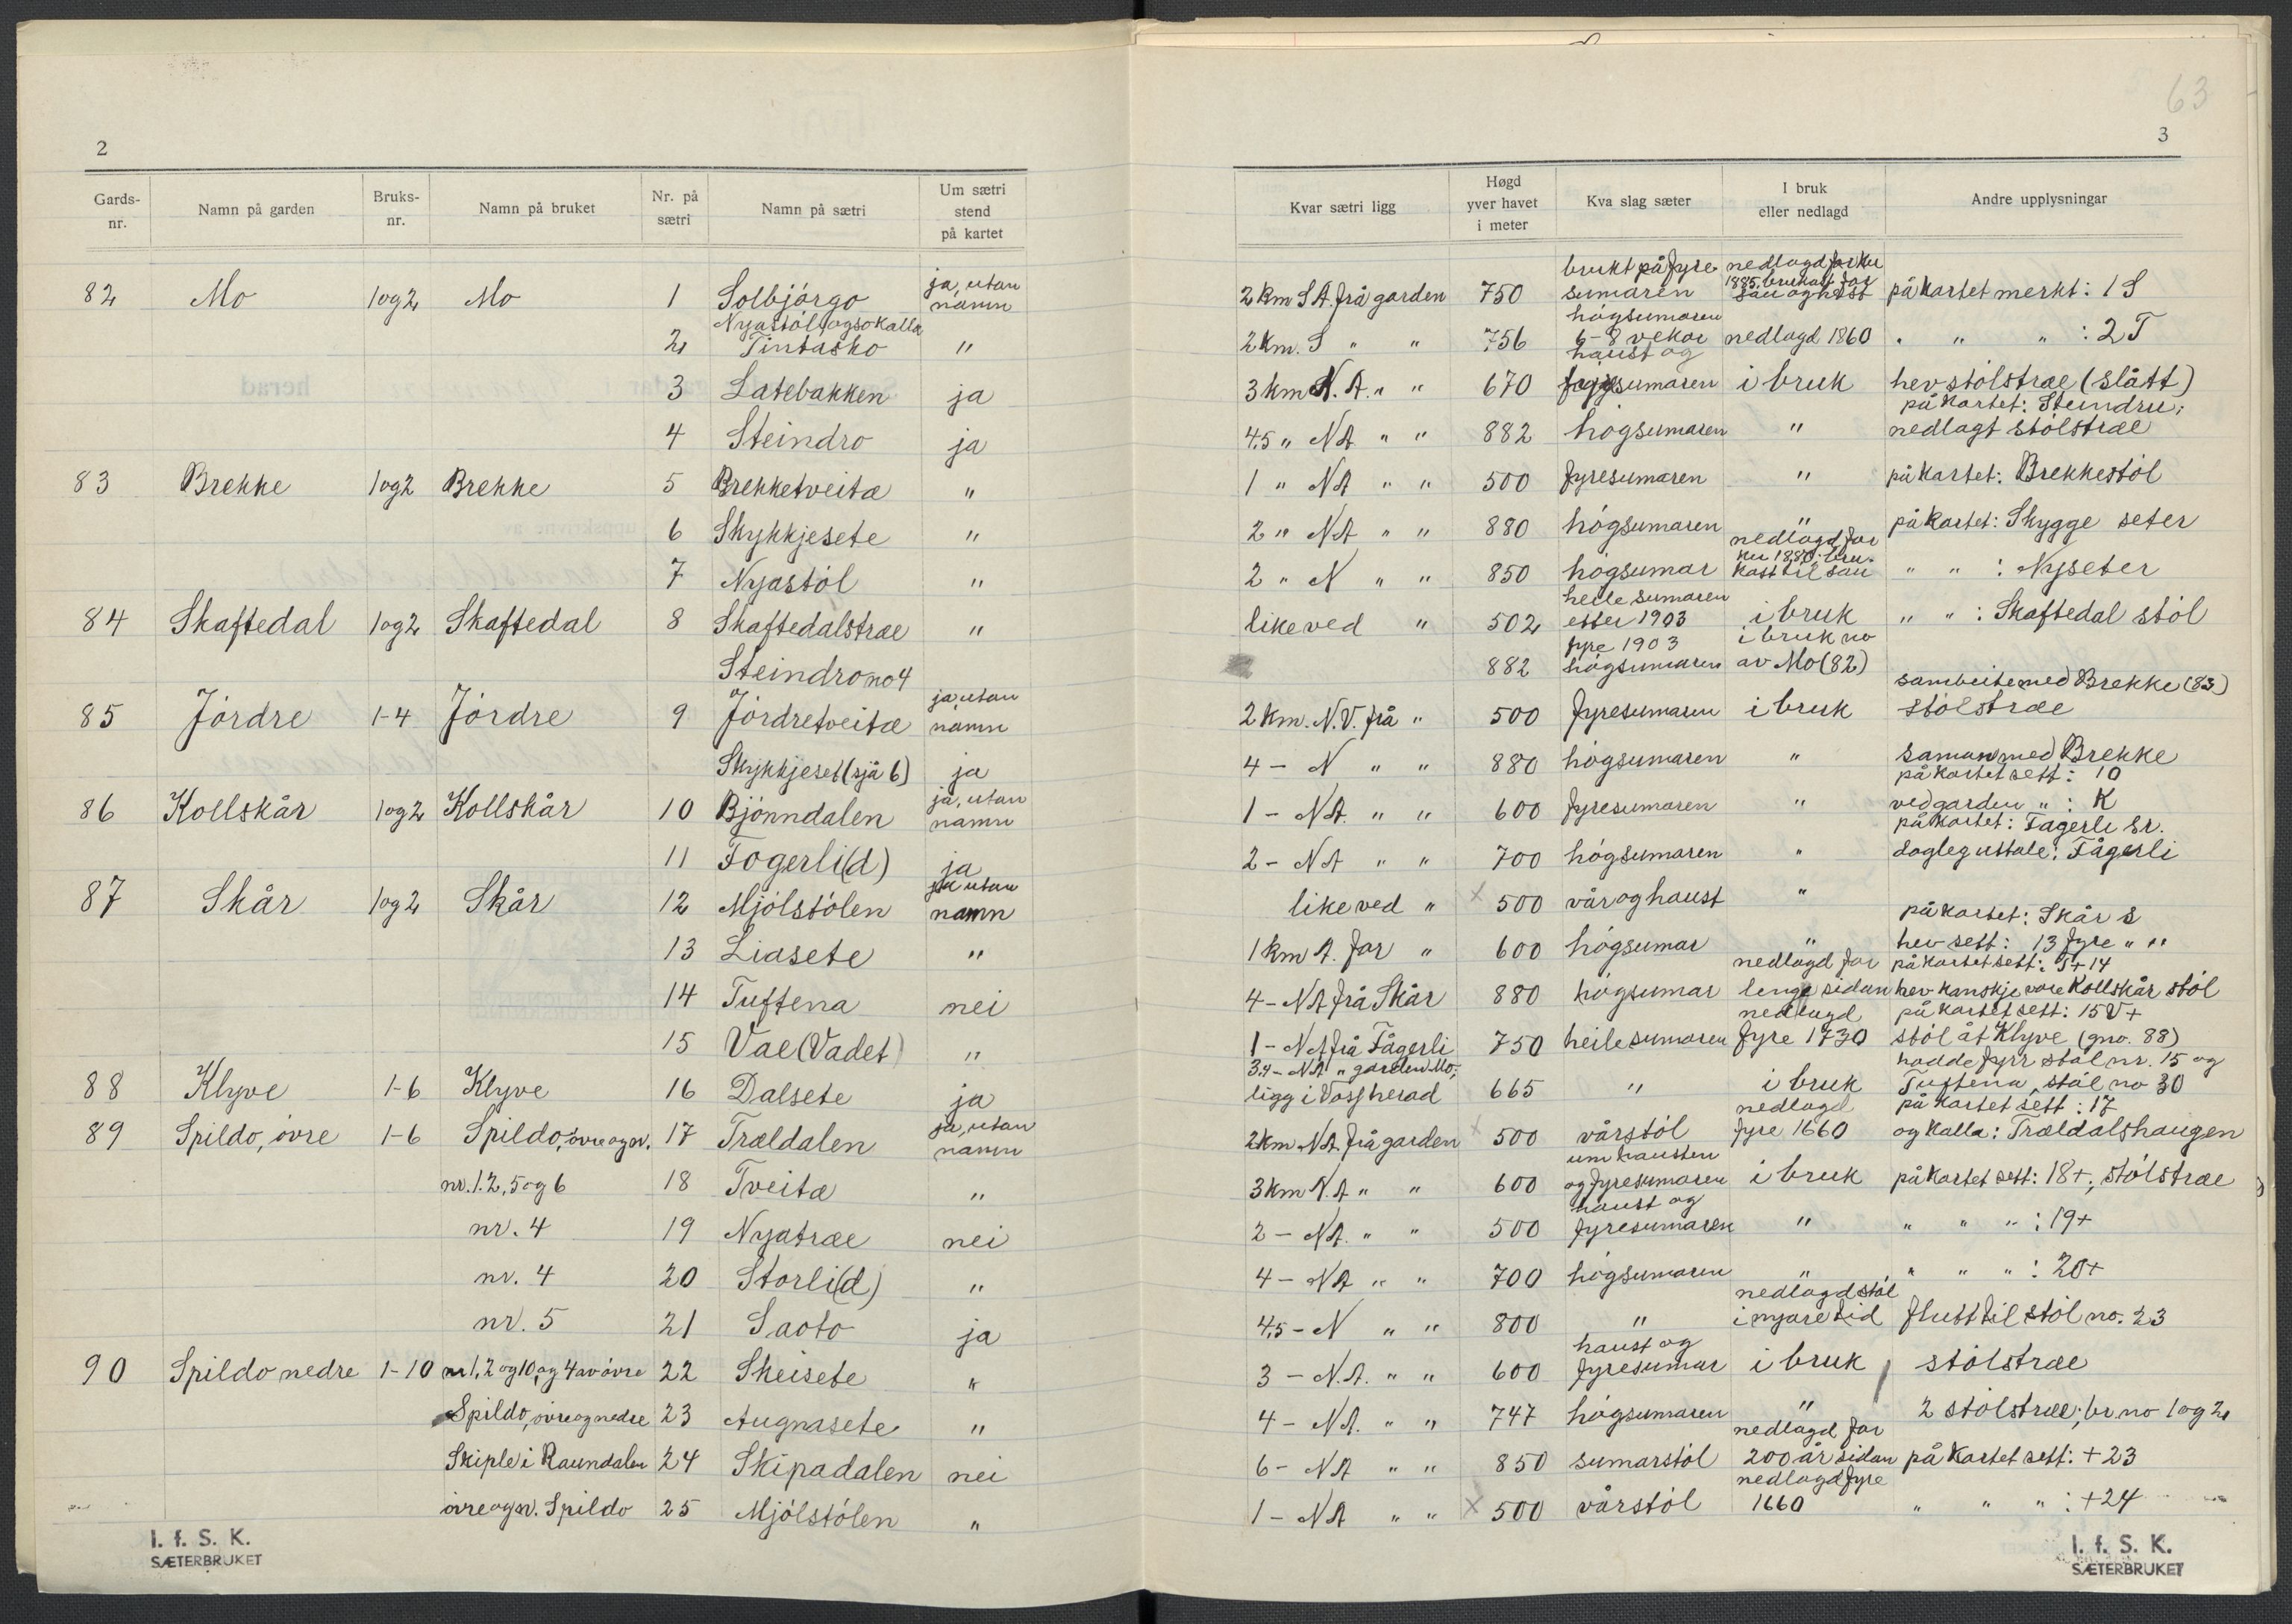 63
2
3
Gards-nr. Namn på garden Bruks-nr. Namn på bruket Nr. på sætri Namn på sætri Um sætri stend på kartet Kvar sætri ligg Høgd yver havet i meter Kva slag sæter I bruk eller nedlagd Andre upplysningar
82 Mo 1og2 Mo 1 Solbjórgo ja, utan namn 2 km S.A. frå garden 750 brukt på fyre sumaren nedlagd 1885. sau og hest på kartet merkt: 1 S
2 Nyastól, ogso kalla Tintasko " 2 km. S " " 756 hógsumaren 6-8 vekor nedlagd 1860 " " " : 2 T
3 Latebakken ja 3 km N.A. " " 670 haust og fyresumaren i bruk hev stólstræ (slått)
4 Steindro ja 4,5 " NA " " 882 hógsumaren " på kartet: Steindru; nedlagt stólstræ
83 Brekke 1og2 Brekke 5 Brekketveitæ " 1 " NA " " 500 fyresumaren " på kartet: Brekkestól
6 Skykkjesete " 2 " NA " " 880 hógsumaren " på kartet: Skygge seter
7 Nyastól " 2 " N " " 850 hógsumar nedlagd 1880. til sau " " : Nyseter
84 Skaftedal 1og2 Skaftedal 8 Skaftedalstræ " like ved " 502 heile sumaren etter 1903 i bruk " " : Skaftedal stól
Steindro no 4 882 fyre 1903 hógsumaren i bruk no av Mo (82)
85 Jórdre 1-4 Jórdre 9 Jórdretveitæ ja, utan namn 2 km. N.V. frå " 500 fyresumaren i bruk sambeite med Brekke (83) stólstræ
Skykkjeset (sjå 6) ja 4 - N " " 880 hógsumaren " saman med Brekke
86 Kollskår 1og2 Kollskår 10 Bjónndalen ja, utan namn 1 - NA. " " 600 fyresumaren " på kartet sett: 10 ved garden " : K
11 Fogerli(d) ja 2 - NA " " 700 hógsumaren " på kartet: Fagerli sr. dagleg uttale: Fågerli
87 Skår 1og2 Skår 12 Mjólstólen ja utan namn like ved " x 500 vår og haust "
13 Liasete " 1 km A. for " 600 hógsumar " på kartet: Skår s hev sett: 13 fyre " "
14 Tuftena nei 4 - NA frå Skår 880 hógsumar nedlagd for lenge sidan på kartet sett: T+14 hev kanskje vore Kollskår stól
15 Vae (Vadet) " 1 - NA frå Fågerli 750 heile sumaren nedlagd fyre 1730 på kartet sett: 15 V+ stól åt Klyve (gno. 88)
88 Klyve 1-6 Klyve 16 Dalsete ja 3.4 - NA " garden Mo; ligg i Voss herad 665 " i bruk hadde fyrr stól nr. 15 og Tuftena, stól no 30
89 Spildo, óvre 1-6 Spildo, óvre og n. 17 Trældalen ja, utan namn 2 km NA frå garden x 500 vårstól nedlagd fyre 1660 på kartet sett: 17 og kalla: Trældalshaugen
nr. 1. 2, 5 og 6 18 Tveitæ " 3 km N.A " " 600 um hausten og fyresumaren i bruk på kartet sett: 18+; stólstræ
nr. 4 19 Nyatræ nei 2 - NA. " " 500 haust og fyresumaren " " " " : 19+
nr. 4 20 Storli(d) " 4 - NA " " 700 hógsumaren " " " " : 20+
nr. 5 21 Saoto ja 4,5 - N " " 800 " nedlagd stól i nyare tid flutt til stól no. 23
90 Spildo nedre 1-10 nr 1, 2 og 10, og 4 av óvre 22 Skeisete " 3 - N.A. " " 600 haust og fyresumar i bruk stólstræ
Spildo, óvre og nedre 23 Augnasete " 4 - NA. " " 747 hógsumaren " 2 stólstræ; br. no 1 og 2
Skiple i Raundalen 24 Skipadalen nei 6 - NA " " 850 sumarstól nedlagd for 200 år sidan på kartet sett: +23
óvre og n. Spildo 25 Mjólstólen " 1 - NA " " x 500 vårstól nedlagd fyre 1660 " " " : +24
I. f. S. K.
SÆTERBRUKET
I. f. S. K.
SÆTERBRUKET